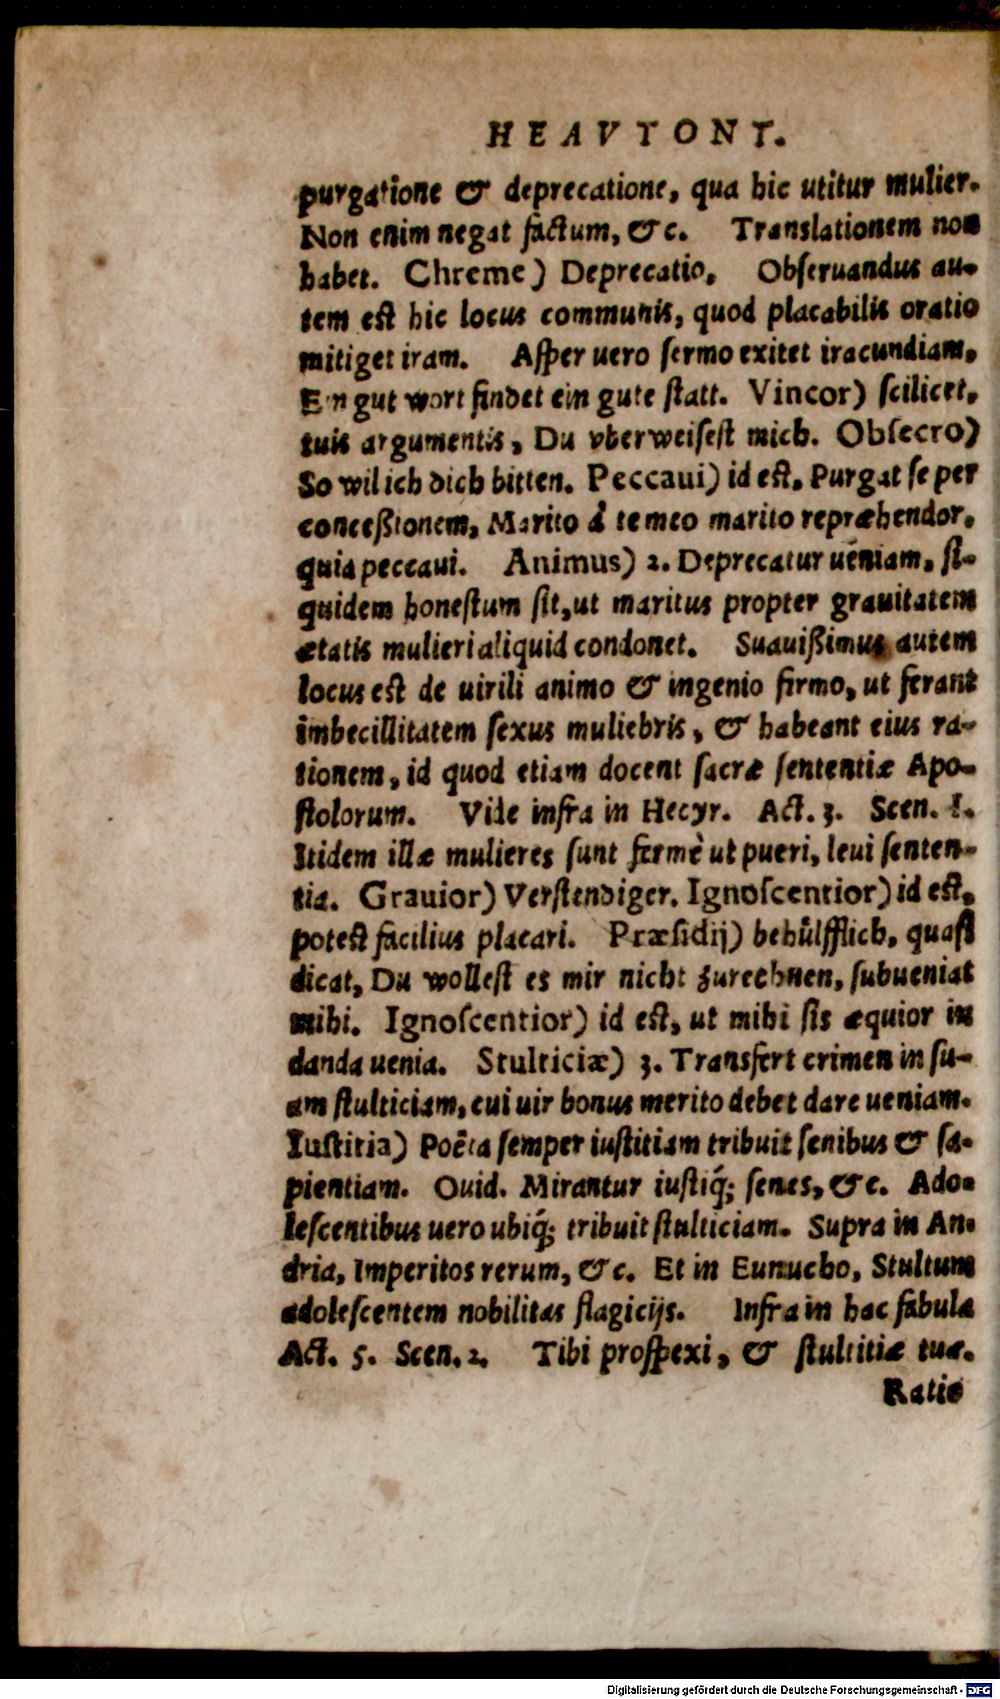 HEAVTONT.
purgatione & deprecatione, qua hic utitur mulier.
Non enim negat factum, &c. Translationem non
habet. Chreme) Deprecatio. Obſeruandus au-
tem eſt hic locus communis, quod placabilis oratio
mitiget iram. Aſper uero ſermo exitet iracundiam.
Ein gut wort findet ein gute ſtatt. Vincor) ſcilicet,
tuis argumentis, Du vberweiſeſt mich. Obſecro)
So wil ich dich bitten. Peccaui) id eſt, Purgat ſe per
conceßionem, Marito à te meo marito repræhendor,
quia peccaui. Animus) 2. Deprecatur uéniam, ſi-
quidem honeſtum ſit, ut maritus propter grauitatem
ætatis mulieri aliquid condonet. Suauißimus autem
locus eſt de uirili animo & ingenio firmo, ut ferant
imbecillitatem ſexus muliebris, & habeant eius ra-
tionem, id quod etiam docent ſacræ ſententiæ Apo-
ſtolorum. Vide infra in Hecyr. Act. 3. Scen. 1.
Itidem illæ mulieres ſunt fermè ut pueri, leui ſenten-
tia. Grauior) Verſtendiger. Ignoſcentior) id eſt,
poteſt facilius placari. Præſidij) behülfflich, quaſi
dicat, Du wolleſt es mir nicht zurechnen, ſubueniat
mihi. Ignoſcentior) id eſt, ut mihi ſis æquior in
danda uenia. Stulticiæ) 3. Transfert crimen in ſu-
am ſtulticiam, cui uir bonus merito debet dare ueniam.
Iuſtitia) Poëta ſemper iuſtitiam tribuit ſenibus & ſa-
pientiam. Ouid. Mirantur iuſtiq́; ſenes, &c. Ado-
leſcentibus uero ubiq́; tribuit ſtulticiam. Supra in An-
dria, Imperitos rerum, &c. Et in Eunucho, Stultum
adoleſcentem nobilitas flagicijs. Infra in hac fabula
Act. 5. Scen. 2. Tibi proſpexi, & ſtultitiæ tuæ.
Ratio
Digitalisierung gefördert durch die Deutsche Forschungsgemeinschaft - DFG